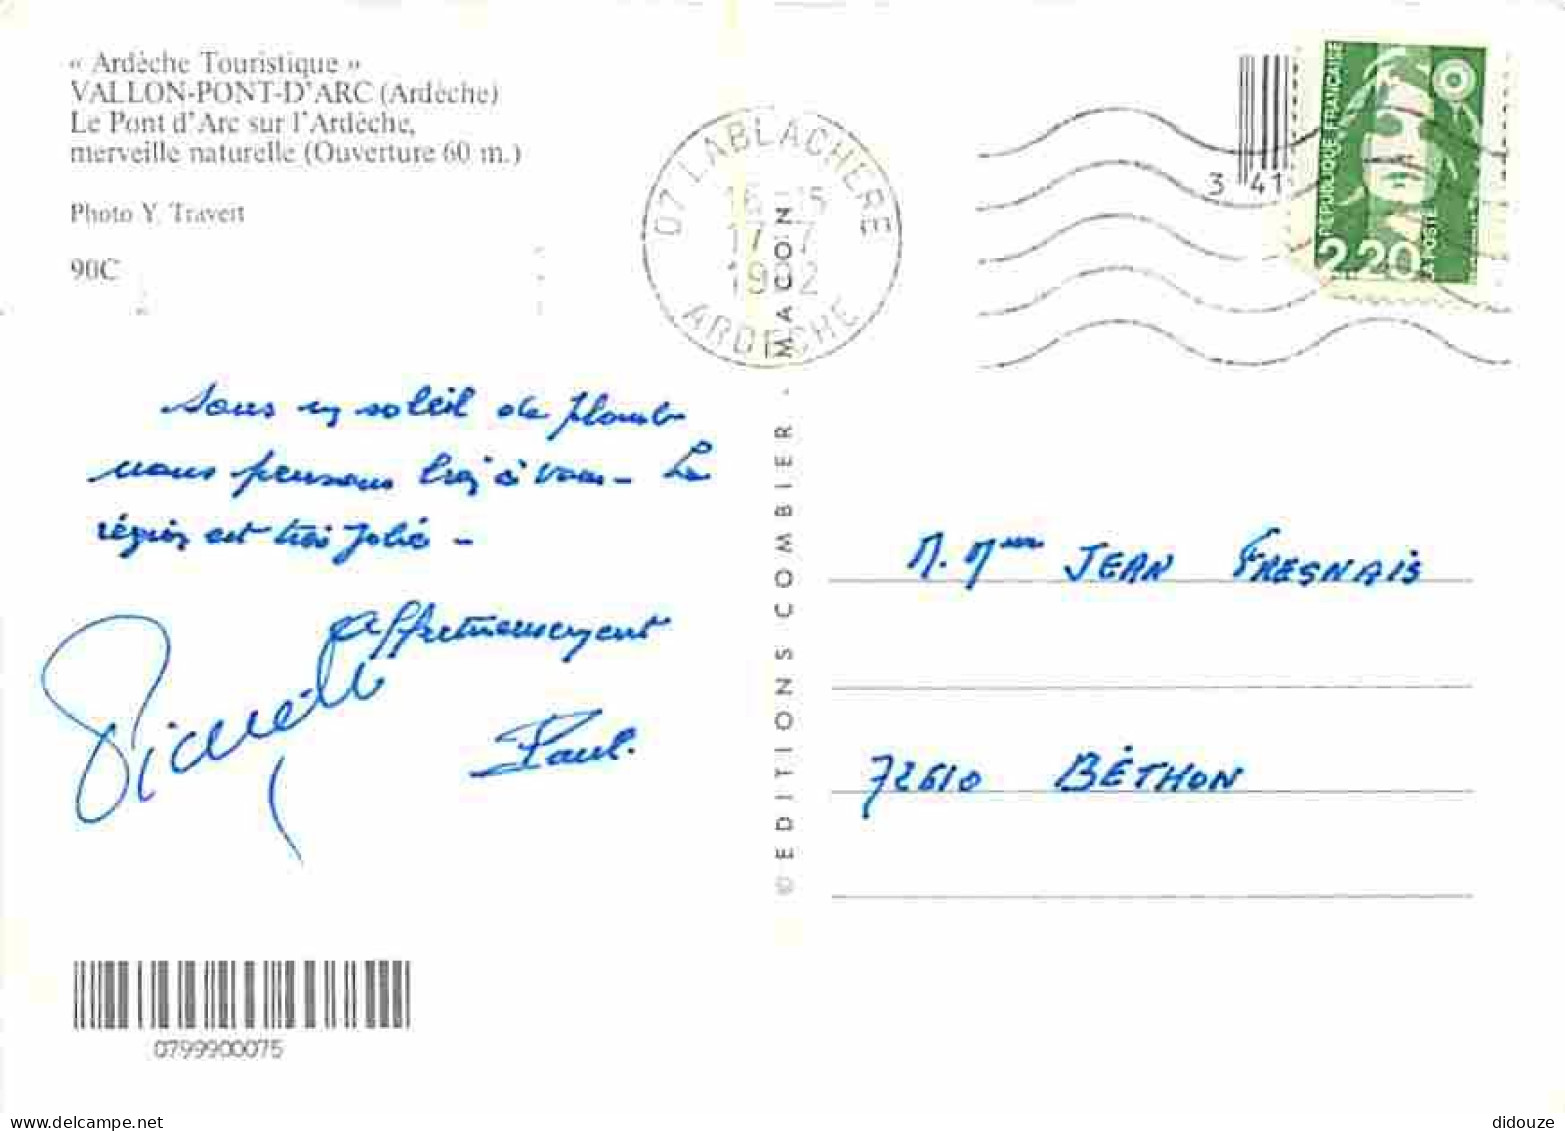 « Ardèche Touristique »
VALLON-PONT-D'ARC (Ardèche)
Le Pont d'Arc sur l'Ardèche,
merveille naturelle (Ouverture 60 m.)
Photo Y. Travert
90C
07 LABLACHERE
16-15
17-7
1992
ARDECHE
3 41
REPUBLIQUE FRANÇAISE
2,20
LA POSTE
Sous un soleil de plomb
nous pensons bien à vous - La
région est très jolie -
Affectueusement
Paul.
© EDITIONS COMBIER - MACON
M. Mme JEAN FRESNAIS
72610 BÉTHON
0799900075
delcampe.net
didouze